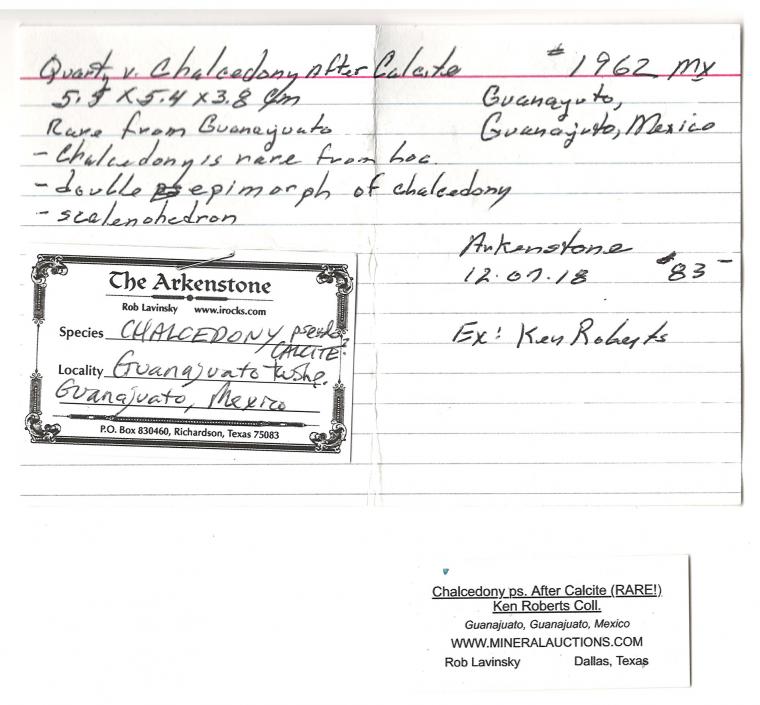 Quartz v. Chalcedony After Calcite
#1962 Mx
5.5 X 5.4 x 3.8 cm
Guanajuto,
Guanajuto, Mexico
Rare from Guanajuato
- Chalcedony is rare from Loc.
- double epimorph of chalcedony
- scalenohedron
Arkenstone
12.07.18 $83-
Ex: Ken Roberts
The Arkenstone
Rob Lavinsky www.irocks.com
Species CHALCEDONY pseudo
CALCITE.
Locality Guanajuato Twshp.
Guanajuato, Mexico
P.O. Box 830460, Richardson, Texas 75083
Chalcedony ps. After Calcite (RARE!)
Ken Roberts Coll.
Guanajuato, Guanajuato, Mexico
WWW.MINERALAUCTIONS.COM
Rob Lavinsky Dallas, Texas